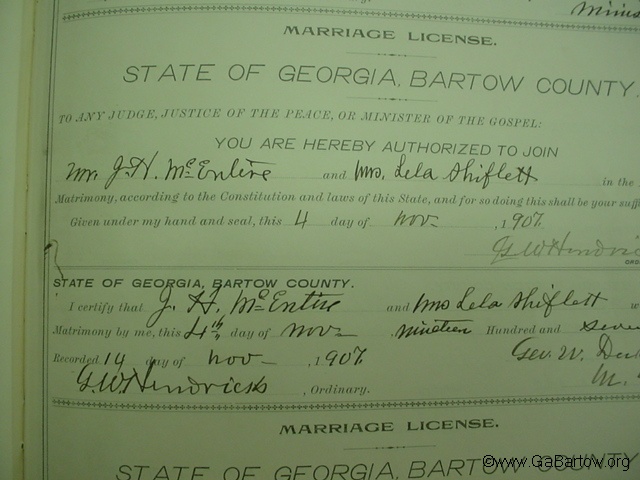 MARRIAGE LICENSE.
STATE OF GEORGIA, BARTOW COUNTY.
TO ANY JUDGE, JUSTICE OF THE PEACE, OR MINISTER OF THE GOSPEL:
YOU ARE HEREBY AUTHORIZED TO JOIN
Mr. J. H. McEntire and Mrs. Lela Shiflett in the
Matrimony, according to the Constitution and laws of this State, and for so doing this shall be your
Given under my hand and seal, this 4 day of Nov , 1907.
G. W. Hendricks
STATE OF GEORGIA, BARTOW COUNTY.
I certify that J. H. McEntire and Mrs Lela Shiflett
Matrimony by me, this 4th day of Nov nineteen Hundred and
Recorded 14 day of Nov , 1907.
Geo. W.
G. W. Hendricks , Ordinary.
M.
MARRIAGE LICENSE.
STATE OF GEORGIA, BARTOW COUNTY
©www.GaBartow.org